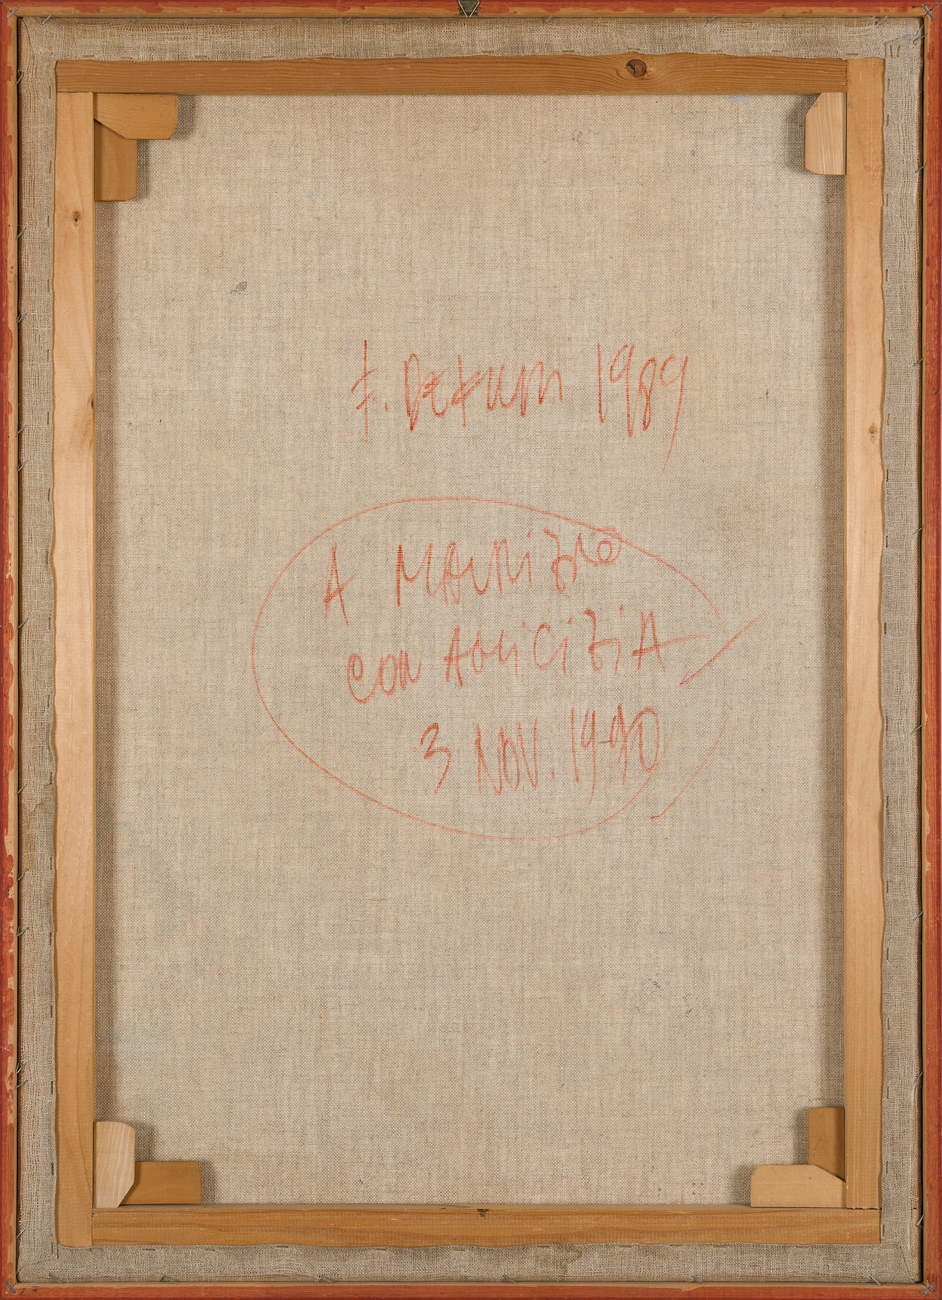 F. 1989
A MAURIZIO
CON AMICIZIA
3 NOV. 1990